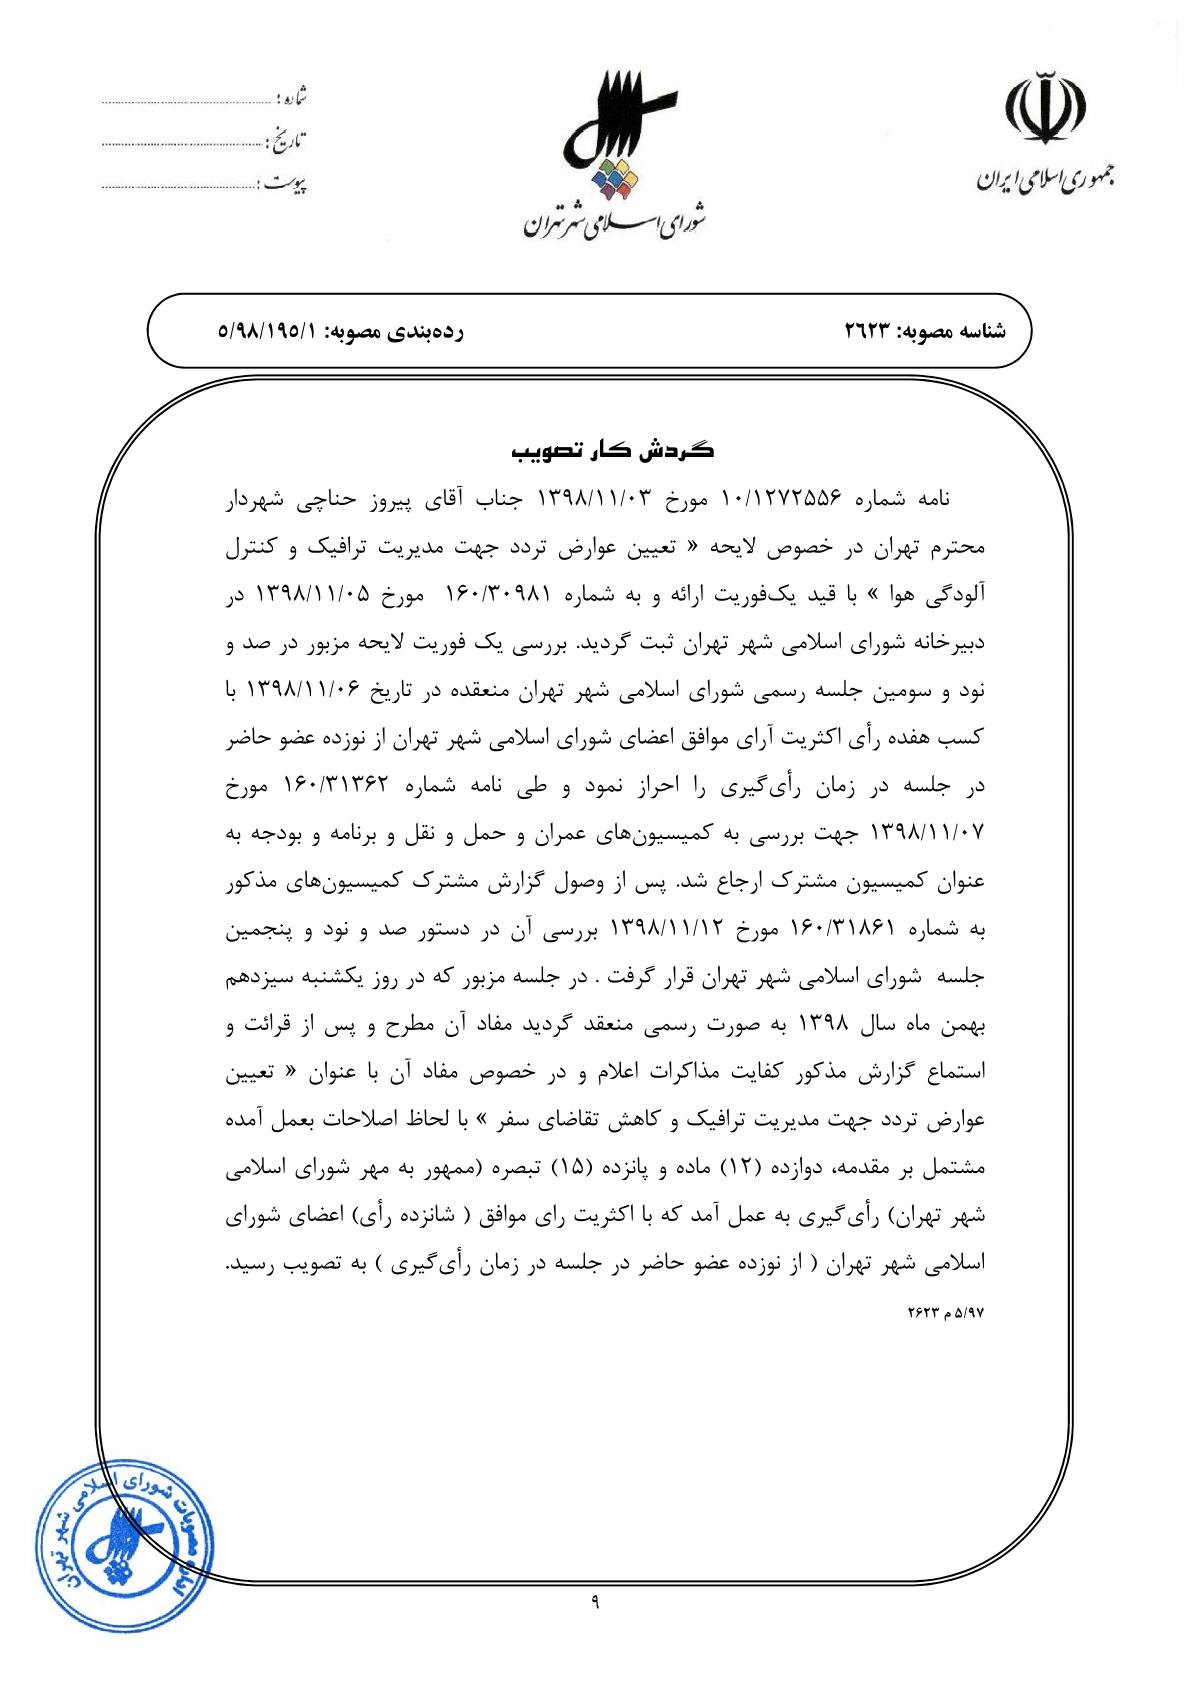 جمهوری اسلامی ایران
شورای اسلامی شهر تهران
شماره :
تاریخ :
پیوست :
شناسه مصوبه: ۲٦۲۳
رده‌بندی مصوبه: ٥/۹۸/۱۹٥/۱
گردش کار تصویب
نامه شماره ۱۰/۱۲۷۲۵۵۶ مورخ ۱۳۹۸/۱۱/۰۳ جناب آقای پیروز حناچی شهردار
محترم تهران در خصوص لایحه « تعیین عوارض تردد جهت مدیریت ترافیک و کنترل
آلودگی هوا » با قید یک‌فوریت ارائه و به شماره ۱۶۰/۳۰۹۸۱ مورخ ۱۳۹۸/۱۱/۰۵ در
دبیرخانه شورای اسلامی شهر تهران ثبت گردید. بررسی یک فوریت لایحه مزبور در صد و
نود و سومین جلسه رسمی شورای اسلامی شهر تهران منعقده در تاریخ ۱۳۹۸/۱۱/۰۶ با
کسب هفده رأی اکثریت آرای موافق اعضای شورای اسلامی شهر تهران از نوزده عضو حاضر
در جلسه در زمان رأی‌گیری را احراز نمود و طی نامه شماره ۱۶۰/۳۱۳۶۲ مورخ
۱۳۹۸/۱۱/۰۷ جهت بررسی به کمیسیون‌های عمران و حمل و نقل و برنامه و بودجه به
عنوان کمیسیون مشترک ارجاع شد. پس از وصول گزارش مشترک کمیسیون‌های مذکور
به شماره ۱۶۰/۳۱۸۶۱ مورخ ۱۳۹۸/۱۱/۱۲ بررسی آن در دستور صد و نود و پنجمین
جلسه شورای اسلامی شهر تهران قرار گرفت . در جلسه مزبور که در روز یکشنبه سیزدهم
بهمن ماه سال ۱۳۹۸ به صورت رسمی منعقد گردید مفاد آن مطرح و پس از قرائت و
استماع گزارش مذکور کفایت مذاکرات اعلام و در خصوص مفاد آن با عنوان « تعیین
عوارض تردد جهت مدیریت ترافیک و کاهش تقاضای سفر » با لحاظ اصلاحات بعمل آمده
مشتمل بر مقدمه، دوازده (۱۲) ماده و پانزده (۱۵) تبصره (ممهور به مهر شورای اسلامی
شهر تهران) رأی‌گیری به عمل آمد که با اکثریت رای موافق ( شانزده رأی) اعضای شورای
اسلامی شهر تهران ( از نوزده عضو حاضر در جلسه در زمان رأی‌گیری ) به تصویب رسید.
۵/۹۷ م ۲۶۲۳
اداره مصوبات شورای اسلامی شهر تهران
۹